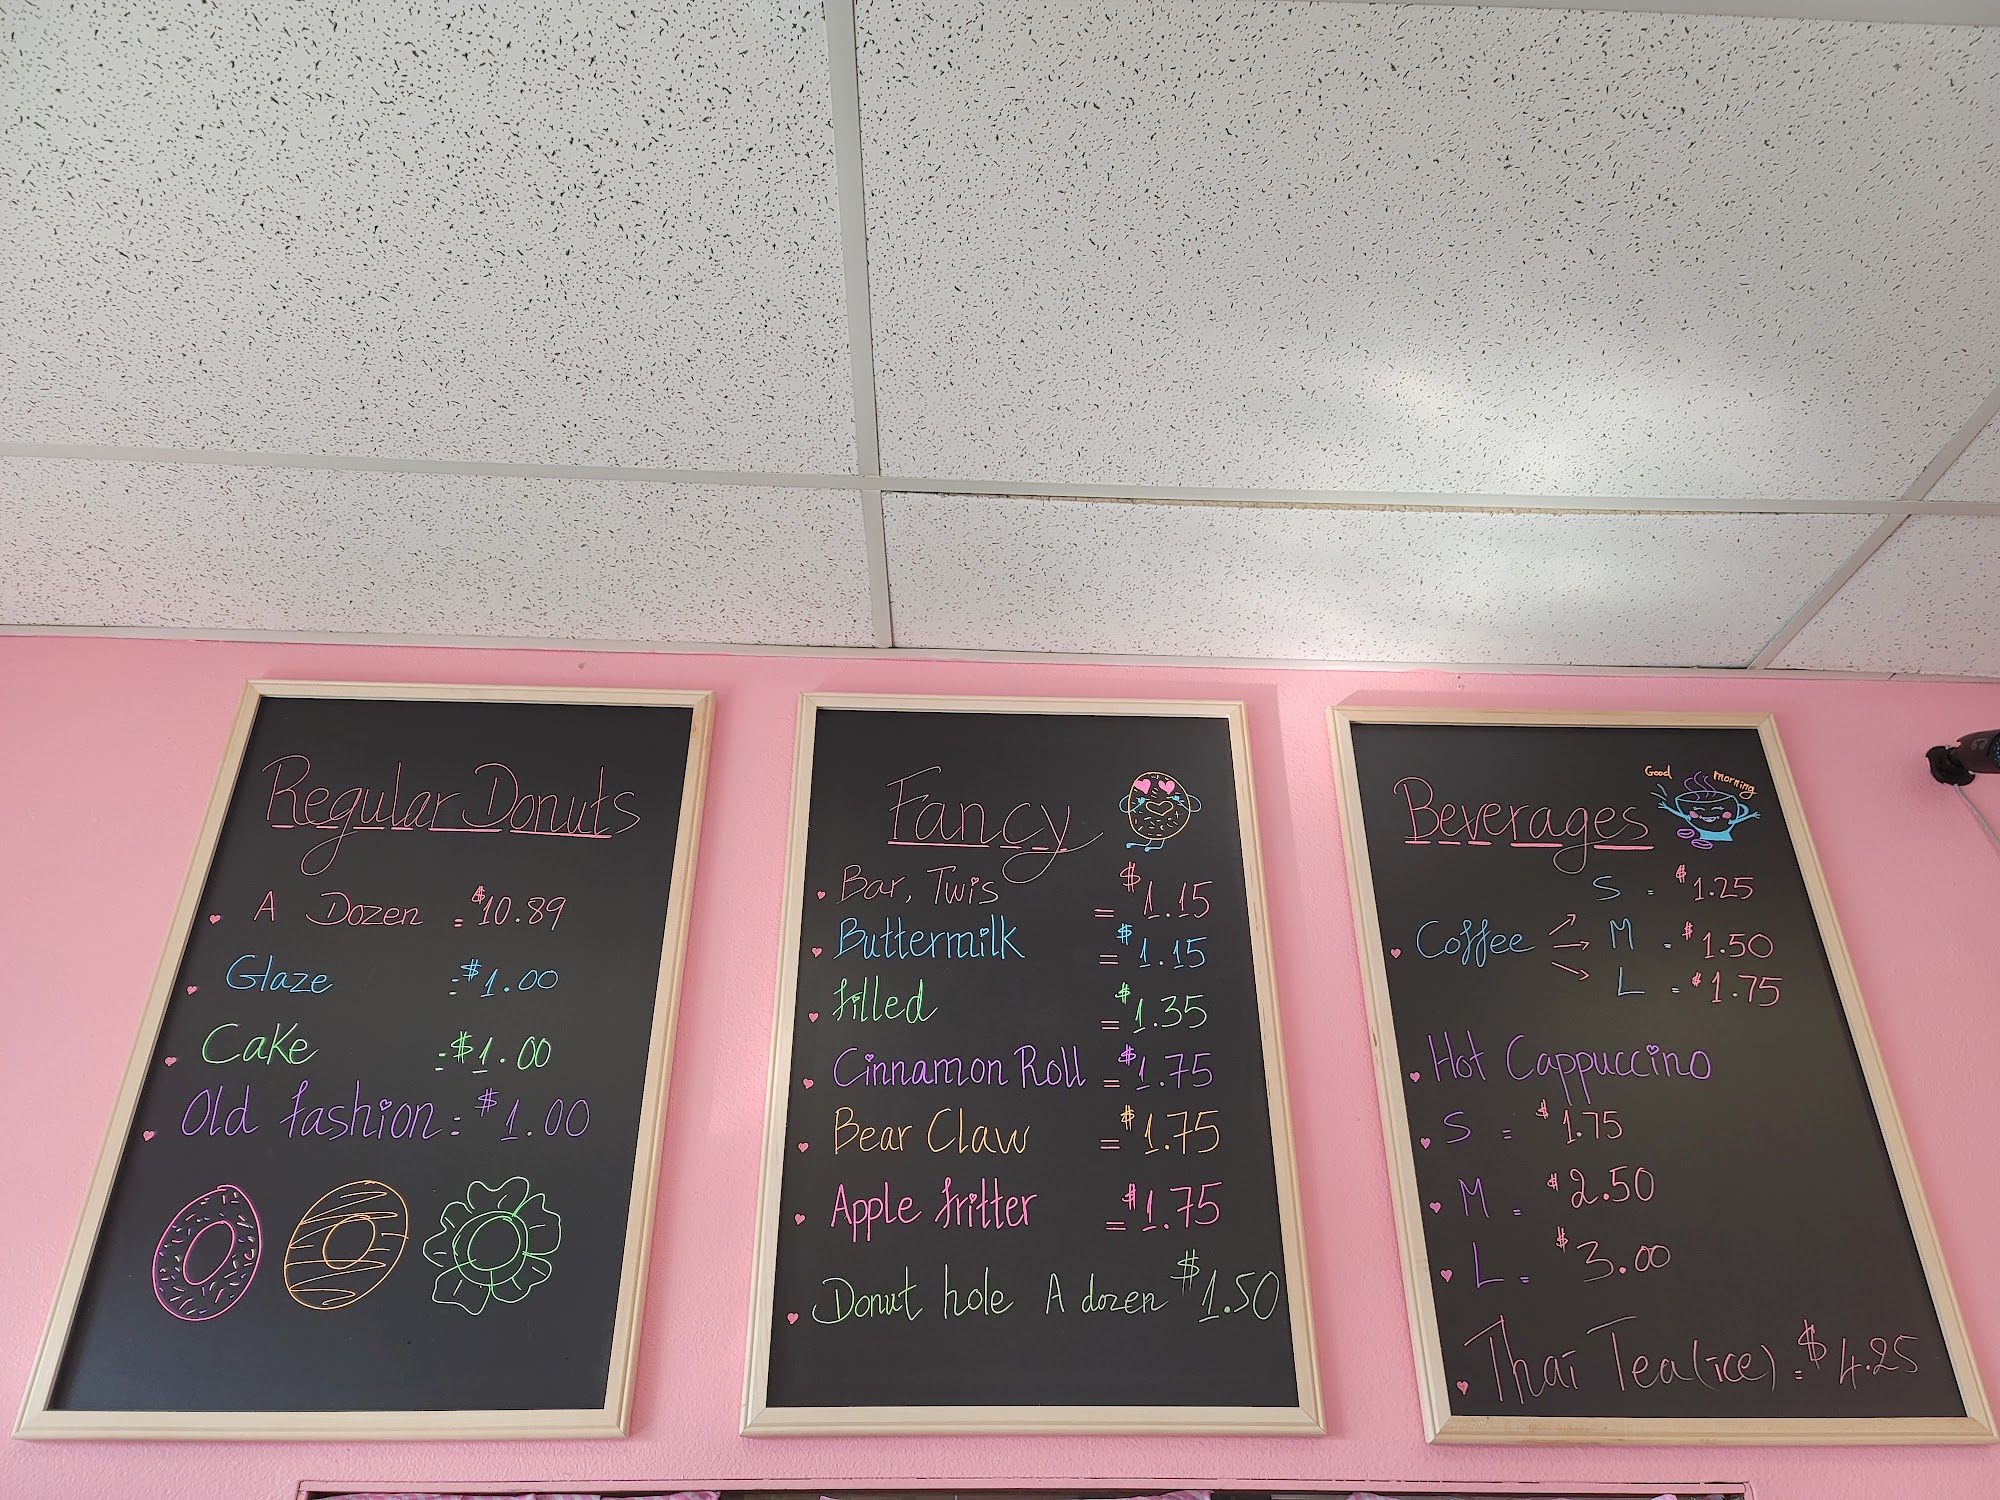 Regular Donuts
A Dozen = $10.89
Glaze = $1.00
Cake = $1.00
Old fashion = $1.00
Fancy
Bar, Twis = $1.15
Buttermilk = $1.15
filled = $1.35
Cinnamon Roll = $1.75
Bear Claw = $1.75
Apple fritter = $1.75
Donut hole A dozen $1.50
Good morning
Beverages
S = $1.25
Coffee M = $1.50
L = $1.75
Hot Cappuccino
S = $1.75
M = $2.50
L = $3.00
Thai Tea (ice) = $4.25